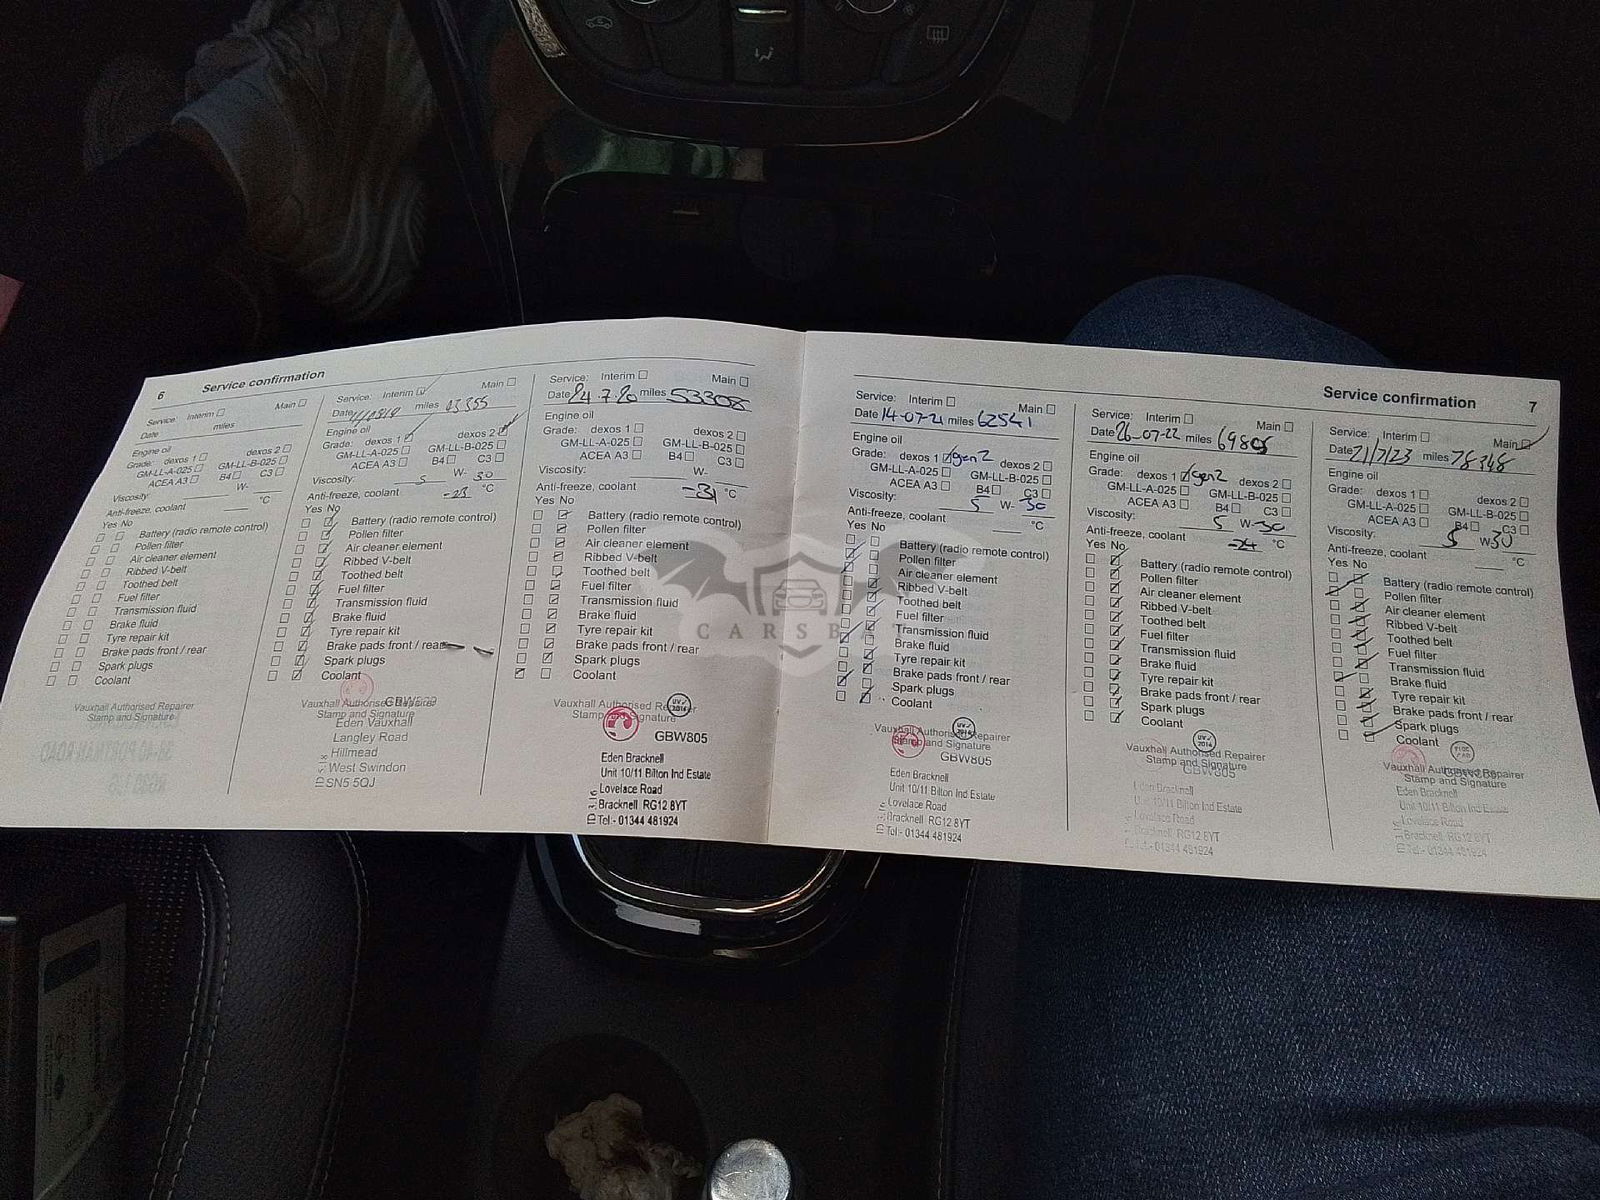 6 Service confirmation
Service: Interim ☐ Main ☐
Date miles
Engine oil
Grade: dexos 1 ☐ dexos 2 ☐
GM-LL-A-025 ☐ GM-LL-B-025 ☐
ACEA A3 ☐ B4 ☐ C3 ☐
Viscosity: W-
Anti-freeze, coolant °C
Yes No
Battery (radio remote control)
Pollen filter
Air cleaner element
Ribbed V-belt
Toothed belt
Fuel filter
Transmission fluid
Brake fluid
Tyre repair kit
Brake pads front / rear
Spark plugs
Coolant
Vauxhall Authorised Repairer
Stamp and Signature
Service: Interim Main ☐
Date miles
Engine oil
Grade: dexos 1 dexos 2
GM-LL-A-025 ☐ GM-LL-B-025 ☐
ACEA A3 ☐ B4 ☐ C3 ☐
Viscosity: 5 W- 30
Anti-freeze, coolant -23 °C
Yes No
Battery (radio remote control)
Pollen filter
Air cleaner element
Ribbed V-belt
Toothed belt
Fuel filter
Transmission fluid
Brake fluid
Tyre repair kit
Brake pads front / rear
Spark plugs
Coolant
Vauxhall Authorised Repairer
Stamp and Signature
Eden Vauxhall
Langley Road
Hillmead
West Swindon
SN5 5QJ
Service: Interim ☐ Main ☐
Date 24.7.20 miles 53308
Engine oil
Grade: dexos 1 ☐ dexos 2 ☐
GM-LL-A-025 ☐ GM-LL-B-025 ☐
ACEA A3 ☐ B4 ☐ C3 ☐
Viscosity: W-
Anti-freeze, coolant -31 °C
Yes No
Battery (radio remote control)
Pollen filter
Air cleaner element
Ribbed V-belt
Toothed belt
Fuel filter
Transmission fluid
Brake fluid
Tyre repair kit
Brake pads front / rear
Spark plugs
Coolant
Vauxhall Authorised Repairer
Stamp and Signature
GBW805
Eden Bracknell
Unit 10/11 Bilton Ind Estate
Lovelace Road
Bracknell RG12 8YT
Tel:- 01344 481924
Service confirmation 7
Service: Interim ☐ Main ☐
Date 14-07-21 miles 62541
Engine oil
Grade: dexos 1 gen2 dexos 2 ☐
GM-LL-A-025 ☐ GM-LL-B-025 ☐
ACEA A3 ☐ B4 ☐ C3 ☐
Viscosity: 5 W- 30
Anti-freeze, coolant °C
Yes No
Battery (radio remote control)
Pollen filter
Air cleaner element
Ribbed V-belt
Toothed belt
Fuel filter
Transmission fluid
Brake fluid
Tyre repair kit
Brake pads front / rear
Spark plugs
Coolant
Vauxhall Authorised Repairer
Stamp and Signature
GBW805
Eden Bracknell
Unit 10/11 Bilton Ind Estate
Lovelace Road
Bracknell RG12 8YT
Tel:- 01344 481924
Service: Interim ☐ Main ☐
Date 26-07-22 miles
Engine oil
Grade: dexos 1 gen2 dexos 2 ☐
GM-LL-A-025 ☐ GM-LL-B-025 ☐
ACEA A3 ☐ B4 ☐ C3 ☐
Viscosity: 5 W- 30
Anti-freeze, coolant -24 °C
Yes No
Battery (radio remote control)
Pollen filter
Air cleaner element
Ribbed V-belt
Toothed belt
Fuel filter
Transmission fluid
Brake fluid
Tyre repair kit
Brake pads front / rear
Spark plugs
Coolant
Vauxhall Authorised Repairer
Stamp and Signature
GBW805
Eden Bracknell
Unit 10/11 Bilton Ind Estate
Lovelace Road
Bracknell RG12 8YT
Tel:- 01344 481924
Service: Interim ☐ Main
Date 21/7/23 miles 78348
Engine oil
Grade: dexos 1 ☐ dexos 2 ☐
GM-LL-A-025 ☐ GM-LL-B-025 ☐
ACEA A3 ☐ B4 ☐ C3 ☐
Viscosity: 5 W 30
Anti-freeze, coolant °C
Yes No
Battery (radio remote control)
Pollen filter
Air cleaner element
Ribbed V-belt
Toothed belt
Fuel filter
Transmission fluid
Brake fluid
Tyre repair kit
Brake pads front / rear
Spark plugs
Coolant
Vauxhall Authorised Repairer
Stamp and Signature
Eden Bracknell
Unit 10/11 Bilton Ind Estate
Lovelace Road
Bracknell RG12 8YT
Tel:- 01344 481924
CARSBAT